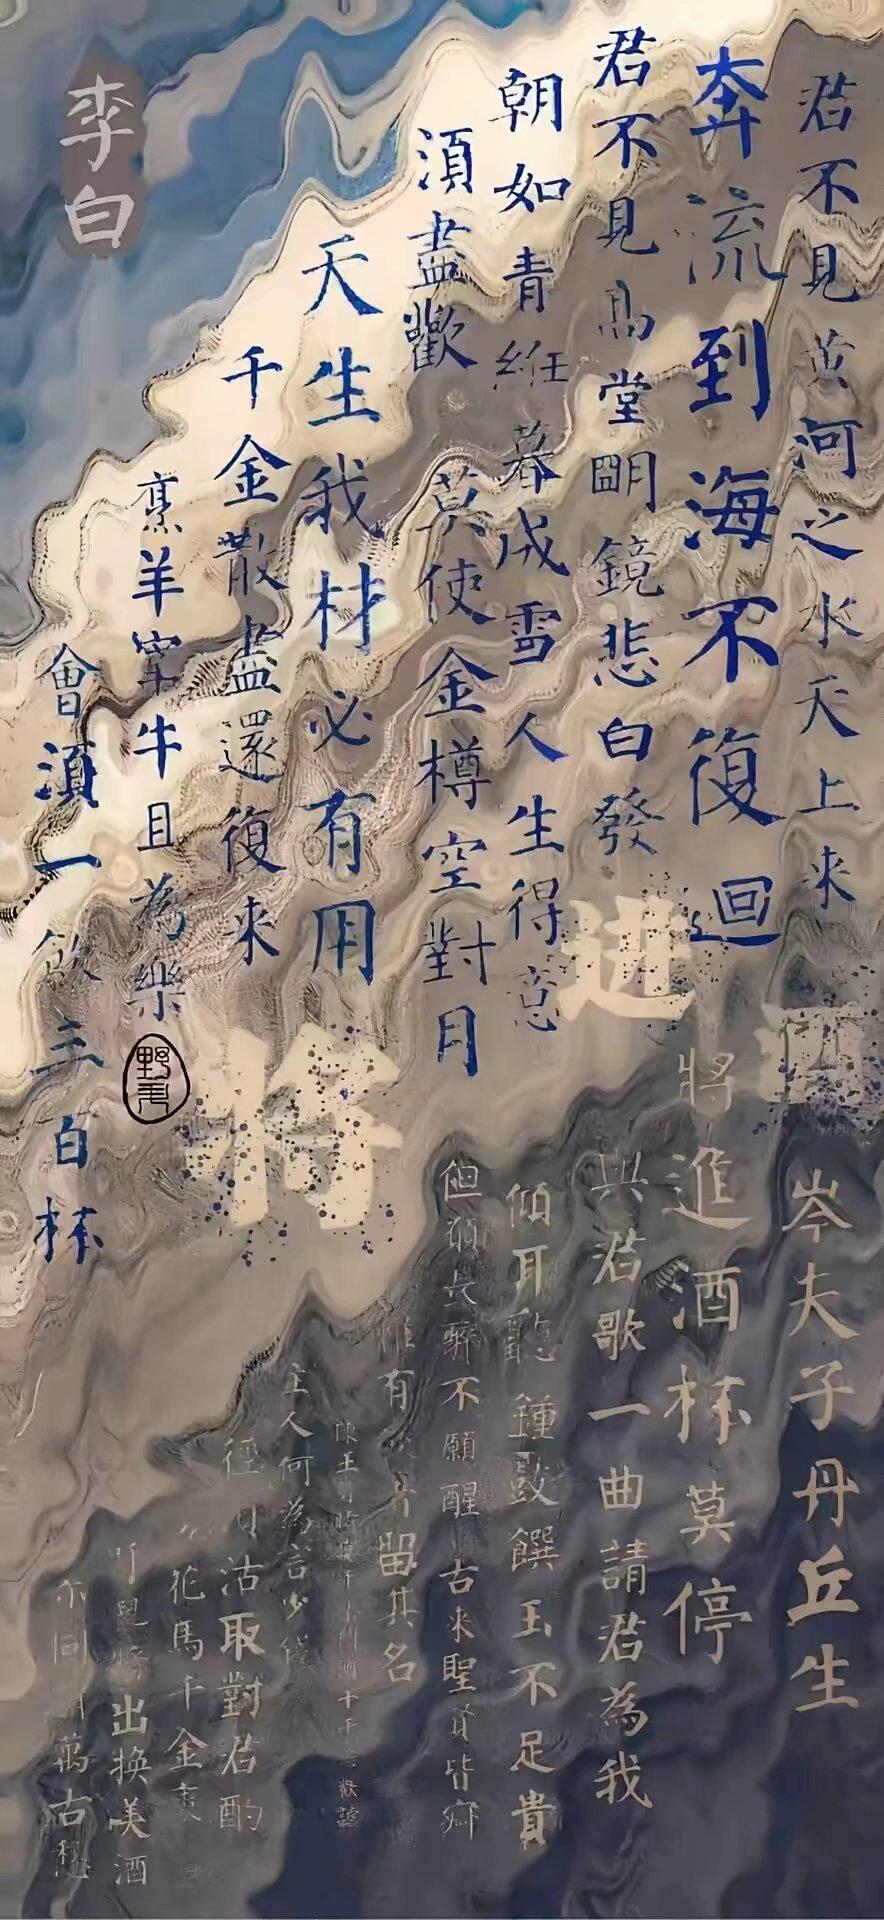 君不見黄河之水天上来
奔流到海不復迴
君不見高堂明鏡悲白發
朝如青絲暮成雪人生得意
須盡歡莫使金樽空對月
天生我材必有用
千金散盡還復来
烹羊宰牛且為樂
會須一飲三白杯
李白
将进酒
岑夫子丹丘生
將進酒杯莫停
與君歌一曲請君為我
傾耳聽鍾鼓饌玉不足貴
但願長醉不願醒古来聖賢皆
惟有者留其名
主人何為言少錢
徑沽取對君酌
花馬千金裘
呼兒將出換美酒
尔同萬古愁